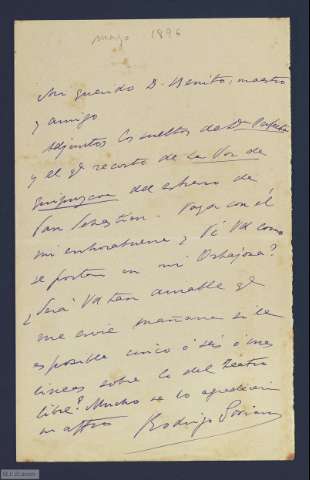 mayo 1896
Mi querido D. Benito, maestro
y amigo
Adjuntos los sueltos de Dª Perfecta
y el qº recorto de La Voz de
Guipuzcoa del estreno de
San Sebastian. Vaya con él
mi enhorabuena ¿Vé Vd como
se portan en mi Orbajosa?
¿Será Vd tan amable qº
me envie mañana si le
es posible cinco ó seis ó mas
lineas sobre lo del Teatro
libre? Mucho se lo agradeceria
su affmo
Rodrigo Soriano